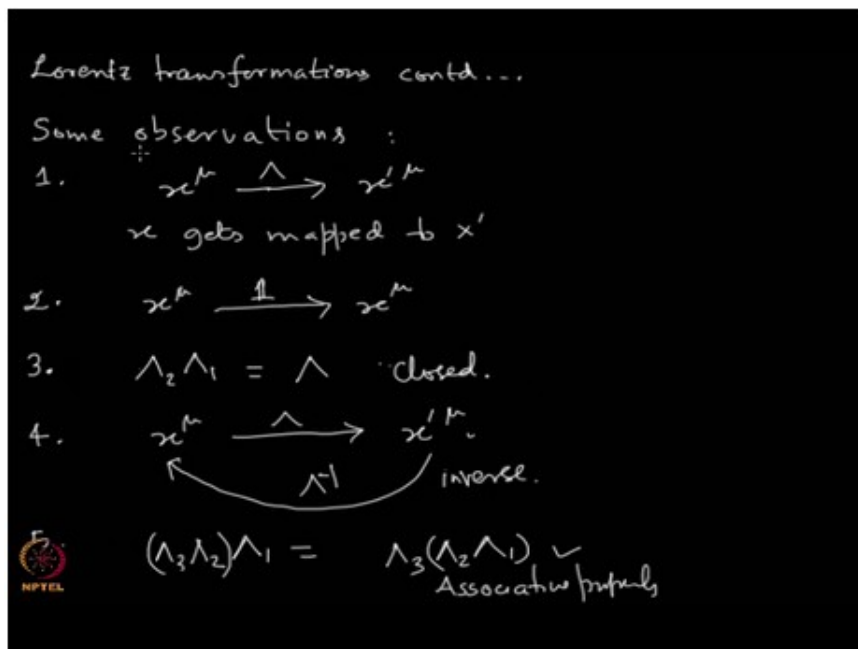 Lorentz transformations contd...
Some observations :
1. x^μ —Λ→ x'^μ
x gets mapped to x'
2. x^μ —𝟙→ x^μ
3. Λ₂Λ₁ = Λ closed.
4. x^μ —Λ→ x'^μ
Λ⁻¹ inverse.
5. (Λ₃Λ₂)Λ₁ = Λ₃(Λ₂Λ₁) ✓
Associative property
NPTEL